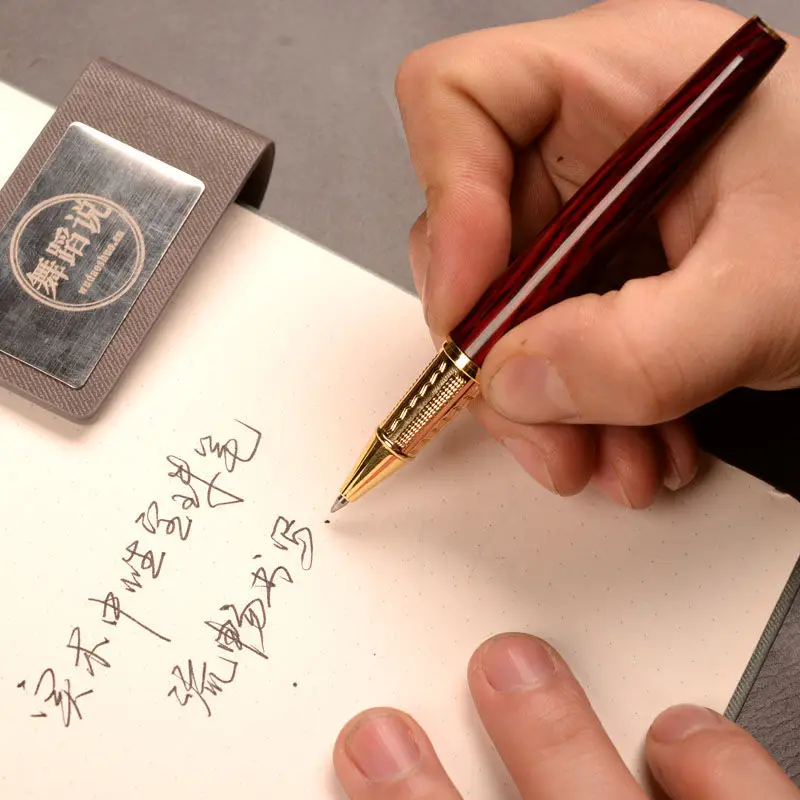 舞蹈说
实木中性宝珠笔
流畅书写